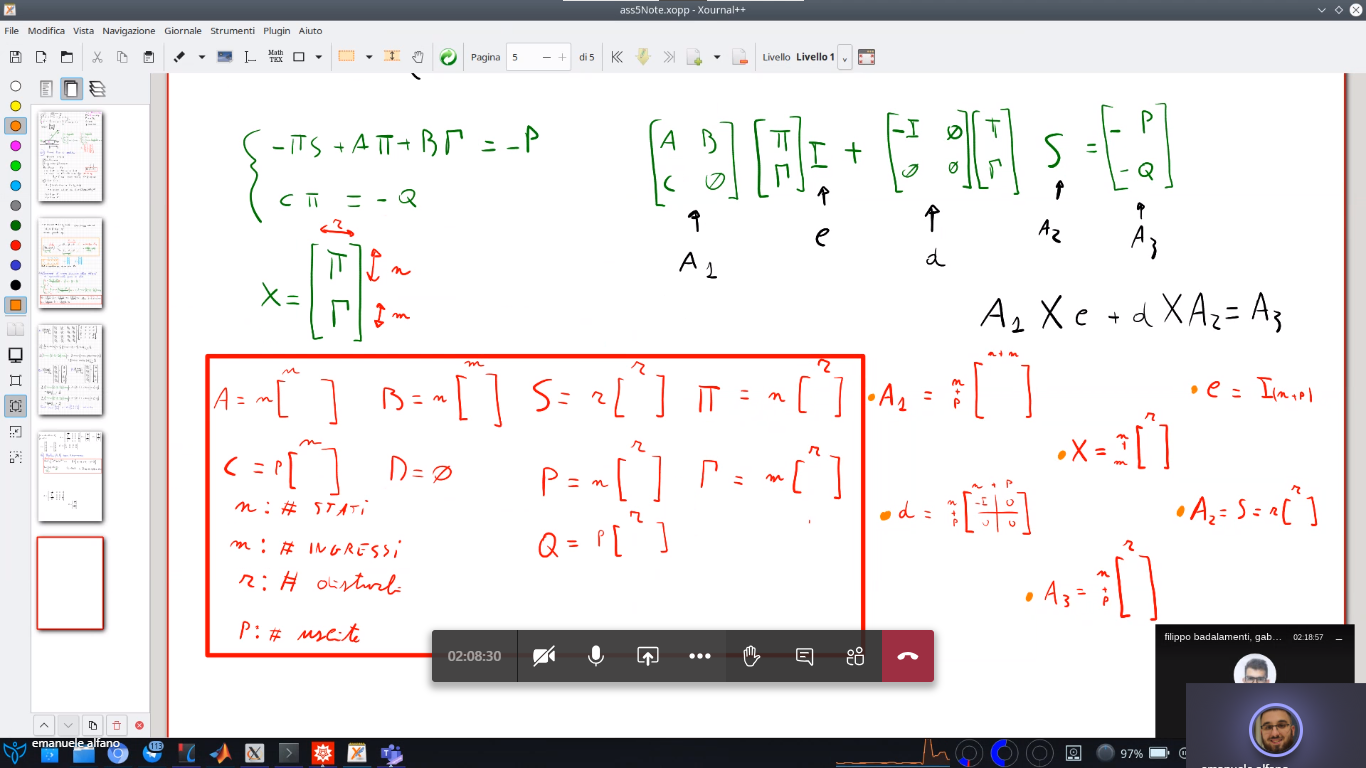 ass5Note.xopp - Xournal++
File Modifica Vista Navigazione Giornale Strumenti Plugin Aiuto
Math TEX Pagina 5 di 5 Livello Livello 1
{ -ΠS + AΠ + BΓ = -P
CΠ = -Q
[A B; C ∅] [Π; Γ] I + [-I ∅; ∅ ∅] [Π; Γ] S = [-P; -Q]
A1 e d A2 A3
r
X = [Π; Γ] n m
A1 X e + d X A2 = A3
A = n[ n ] B = n[ m ] S = r[ r ] Π = n[ r ]
C = P[ n ] D = ∅ P = n[ r ] Γ = m[ r ]
Q = P[ r ]
n: # STATI
m: # INGRESSI
r: # disturbi
P: # uscite
• A1 = n+P [ n+m ]
• e = I(n+P)
• X = n+m [ r ]
• d = n+P [ n + P -I 0 0 0 ]
• A2 = S = r[ r ]
• A3 = n+P [ r ]
02:08:30
filippo badalamenti, gab... 02:18:57
emanuele alfano
113
97%
emanuele alfano